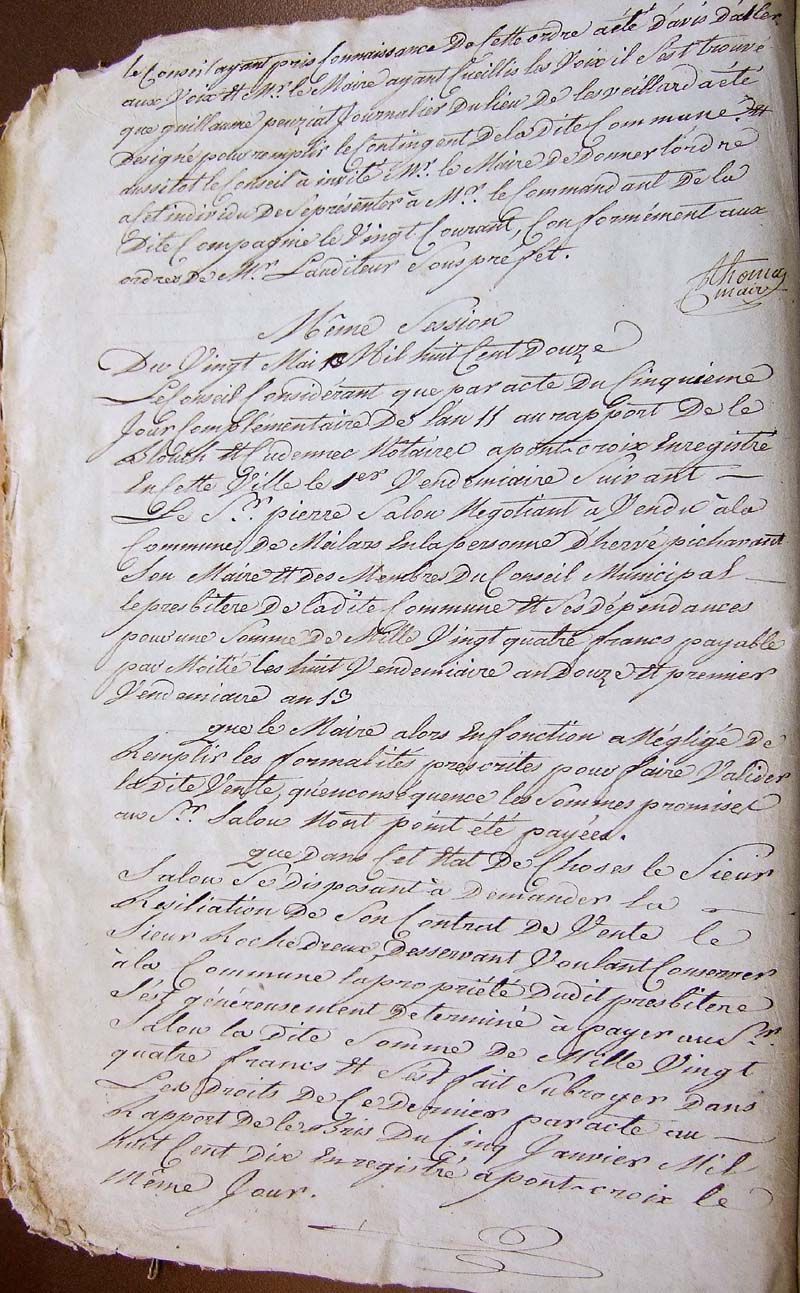 le Conseil ayant pris Connaissance De Cette ordre a été D'avis D'aller
aux Voix et Mr. le Maire ayant Cueillis les Voix il s'est trouvé
que guillaume peuziat Journalier Du lieu De lesveillard a été
Designé pour remplir le Contingent De la Dite Commune. et
aussitot le Conseil à invité Mr. le Maire De Donner l'ordre
a Cet individu De Se présenter à Mr. le Commandant De la
Dite Compagnie le Vingt Courant, Conformément aux
ordres De Mr. L'auditeur Sous prefet.
Thomas
maire
Même Session
Du Vingt Mai Mil huit Cent Douze
Le Conseil Considérant que par acte Du Cinquieme
Jour Complémentaire De l'an 11 au rapport De le
Blouch et Cudennec Notaires a pont-croix Enregistré
En Cette Ville le 1er Vendemiaire Suivant —
Le Sr. pierre Salou Négotiant à Vendu à la
Commune De Meilars En la personne D'hervé pichavant
Son Maire et Des Membres Du Conseil Municipal —
le presbitere De la dite Commune et Ses Dépendances
pour une Somme De Mille Vingt quatre francs payable
par Moitié les huit Vendemiaire an Douze et premier
Vendemiaire an 13
que le Maire alors En fonction a Négligé De
Remplir les formalités prescrites pour faire Valider
la Dite Vente, qu'en conséquence les Sommes promises
au Sr. Salou N'ont point été payées.
que Dans Cet Etat De Choses le Sieur
Salou Se disposant à Demander la —
Résiliation De Son Contrat De Vente le
Sieur Rochedreux, Desservant Voulant Conserver
à la Commune la propriété Dudit presbitere
S'est généreusement Determiné à payer au Sr.
Salou la Dite Somme De Mille Vingt
quatre francs et S'est fait Subroger Dans
Les Droits De Ce Dernier par acte au —
Rapport De le Bris Du Cinq Janvier Mil
huit Cent Dix Enregistré à pont-croix le
Même Jour.